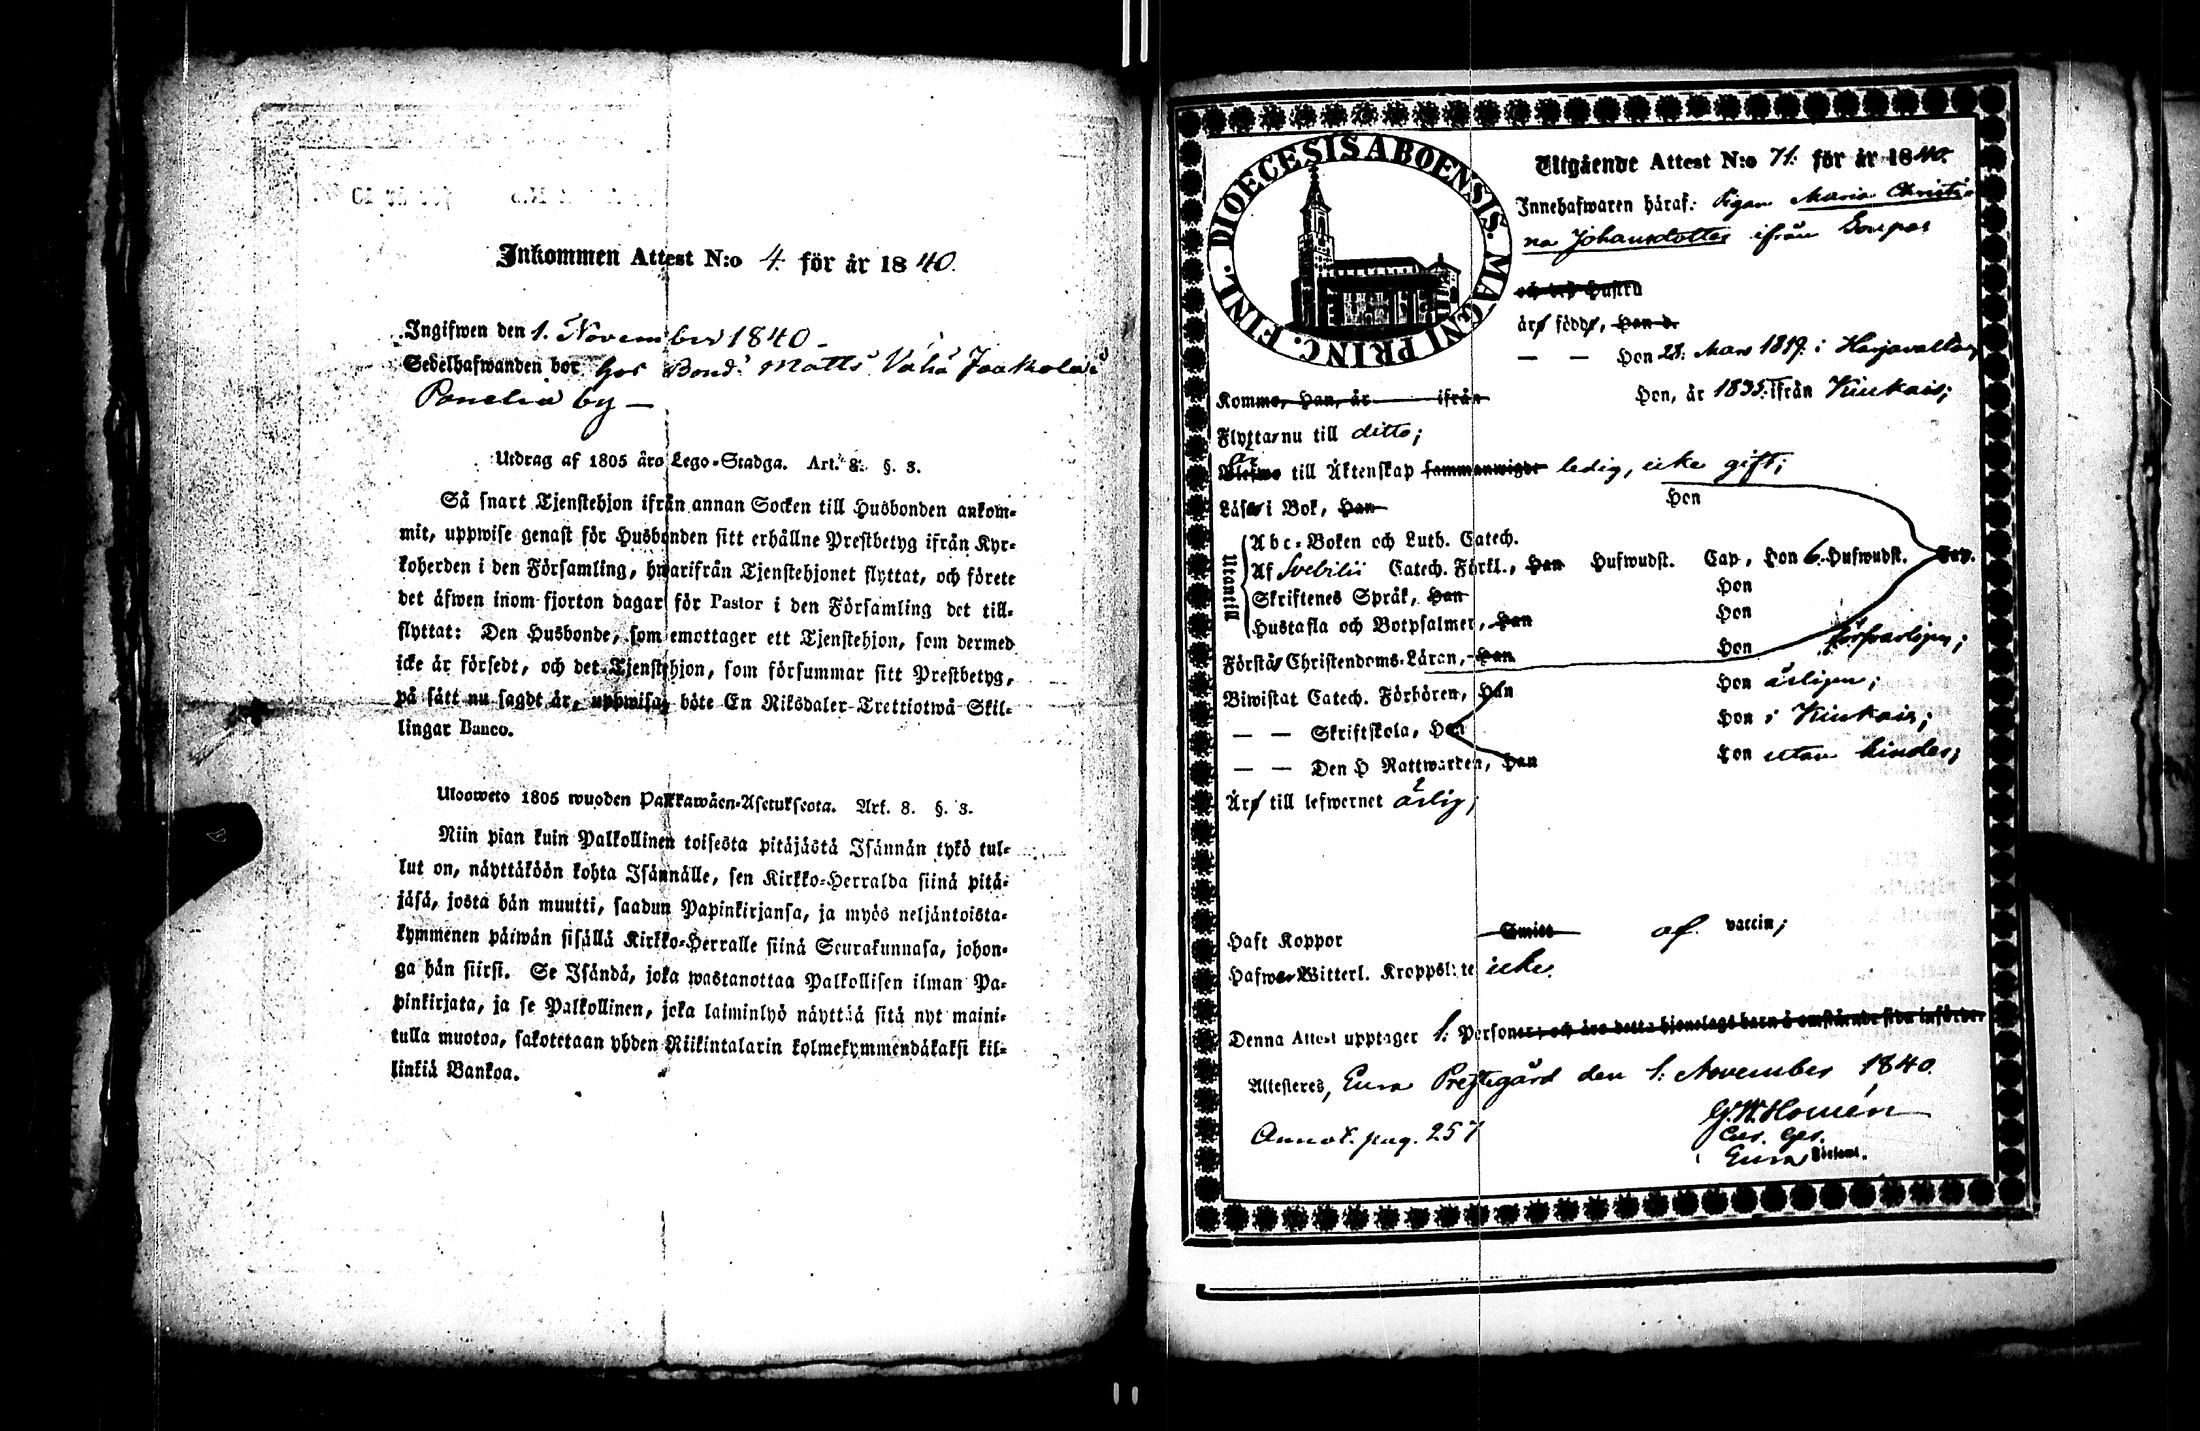 Inkommen Attest N:o 4. för år 1840.
Ingifwen den 1. November 1840 -
Sedelhafwanden bor hos Bond. Matts Vähä Jaakola i
Panelia by -
Utdrag af 1805 års Lego-Stadga. Art. 8. §. 3.
Så snart Tjenstehjon ifrån annan Socken till Husbonden ankom-
mit, uppwise genast för Husbonden sitt erhållne Prestbetyg ifrån Kyr-
koherden i den Församling, hwarifrån Tjenstehjonet flyttat, och förete
det äfwen inom fjorton dagar för Pastor i den Församling det till-
flyttat: Den Husbonde, som emottager ett Tjenstehjon, som dermed
icke är försedt, och det Tjenstehjon, som försummar sitt Prestbetyg,
på sätt nu sagdt är, uppwisa, böte En Riksdaler Trettiotwå Skil-
lingar Banco.
Ulosweto 1805 wuoden Palkkawäen-Asetuksesta. Art. 8. §. 3.
Niin pian kuin Palkollinen toisesta pitäjästä Isännän tykö tul-
lut on, näyttäköön kohta Isännälle, sen Kirkko-Herralda siinä pitä-
jäsä, josta hän muutti, saadun Papinkirjansa, ja myös neljäntoista-
kymmenen päiwän sisällä Kirkko-Herralle siinä Seurakunnasa, johon-
ga hän siirsi. Se Isändä, joka wastanottaa Palkollisen ilman Pa-
pinkirjata, ja se Palkollinen, joka laiminlyö näyttää sitä nyt maini-
tulla muotoa, sakotetaan yhden Riikintalarin kolmekymmendäkaksi kil-
linkiä Bankoa.
DIOECESIS ABOENSIS. MAGNI PRINC. FINL.
Utgående Attest N:o 71. för år 1840.
Innehafwaren häraf: Pigan Maria Christi-
na Johansdotter ifrån
och des Hustru
äro födde, Han d.
— — Hon 28. Mars 1819. i Harjavalta
Komme, Han, år ifrån Hon, år 1835. ifrån Kiukais;
Flyttar nu till ditto;
till Äktenskap sammanwigde ledig, icke gift;
Läser i Bok, Han Hon
Utantill
Abc-Boken och Luth. Catech.
Af Svebilii Catech. Förkl., Han Hufwudst. Cap, Hon 6. Hufwudst. Cap.
Skriftenes Språk, Han Hon
Hustafla och Botpsalmer, Han Hon
Förstår Christendoms-Läran, Han Hon försvarligen;
Biwistat Catech. Förhören, Han Hon årligen;
— — Skriftskola, Han Hon i Kiukais;
— — Den H Nattwarden, Han Hon utan hinder;
Äro till lefwernet ärlig;
Haft Koppor Smitt af vaccin;
Hafwer Witterl. Kroppslyte icke.
Denna Attest upptager 1. Personer, och äro detta hjonelags barn å omstående sida införde.
Attesteres, Eura Prestegård den 1. November 1840.
G. W. Homén
Annot. pag. 257
Eura Förssml.